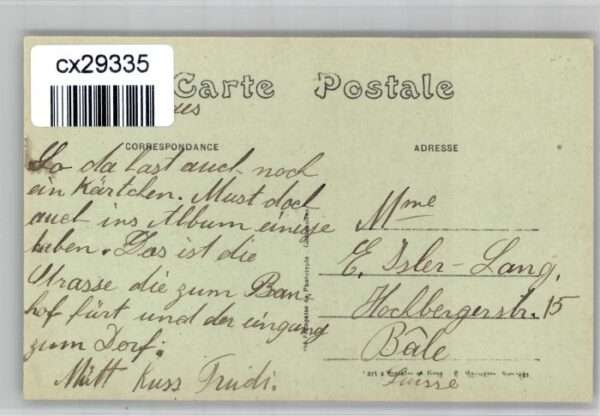 cx29335
Carte Postale
CORRESPONDANCE
ADRESSE
So da hast auch noch
ein Kärtchen. Must doch
auch ins Album einige
haben. Das ist die
Strasse die zum Ban
hof fürt und der eingang
zum Dorf.
Mütt Kuss Trudi.
Mme
E. Isler-Lang,
Hochbergerstr. 15
Bâle
Suisse